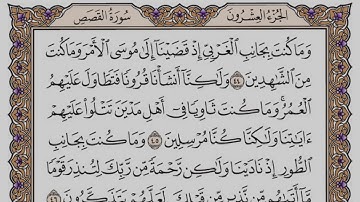 الجزء العشرون سورة القصص
وَمَا كُنتَ بِجَانِبِ ٱلْغَرْبِيِّ إِذْ قَضَيْنَآ إِلَىٰ مُوسَى ٱلْأَمْرَ وَمَا كُنتَ
مِنَ ٱلشَّٰهِدِينَ ٤٤ وَلَٰكِنَّآ أَنشَأْنَا قُرُونًا فَتَطَاوَلَ عَلَيْهِمُ
ٱلْعُمُرُ وَمَا كُنتَ ثَاوِيًا فِىٓ أَهْلِ مَدْيَنَ تَتْلُوا۟ عَلَيْهِمْ
ءَايَٰتِنَا وَلَٰكِنَّا كُنَّا مُرْسِلِينَ ٤٥ وَمَا كُنتَ بِجَانِبِ
ٱلطُّورِ إِذْ نَادَيْنَا وَلَٰكِن رَّحْمَةً مِّن رَّبِّكَ لِتُنذِرَ قَوْمًا
مَّآ أَتَىٰهُم مِّن نَّذِيرٍ مِّن قَبْلِكَ لَعَلَّهُمْ يَتَذَكَّرُونَ ٤٦